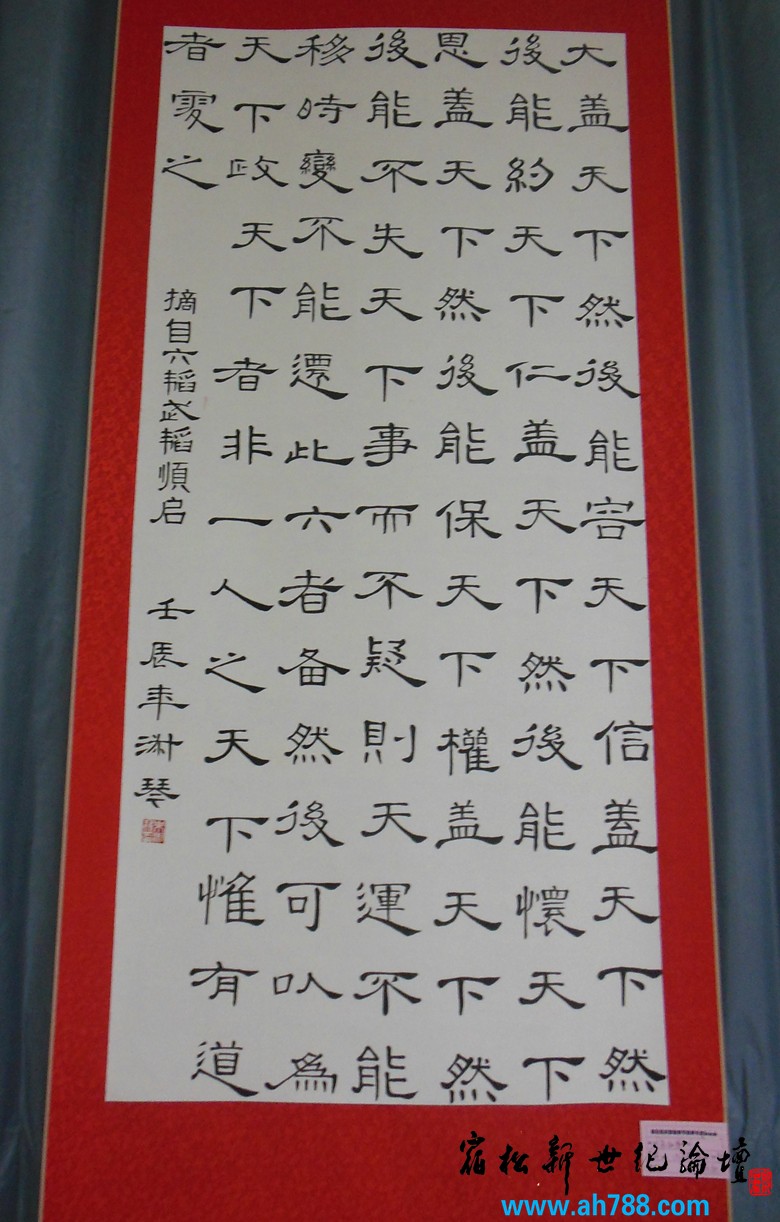 大盖天下然後能容天下信盖天下然
後能約天下仁盖天下然後能懷天下
恩盖天下然後能保天下權盖天下然
後能不失天下事而不疑則天運不能
移時變不能遷此六者备然後可以為
天下政天下者非一人之天下惟有道
者處之
摘自六韬武韬順启 壬辰年淑琴
宿松新世纪論壇
www.ah788.com